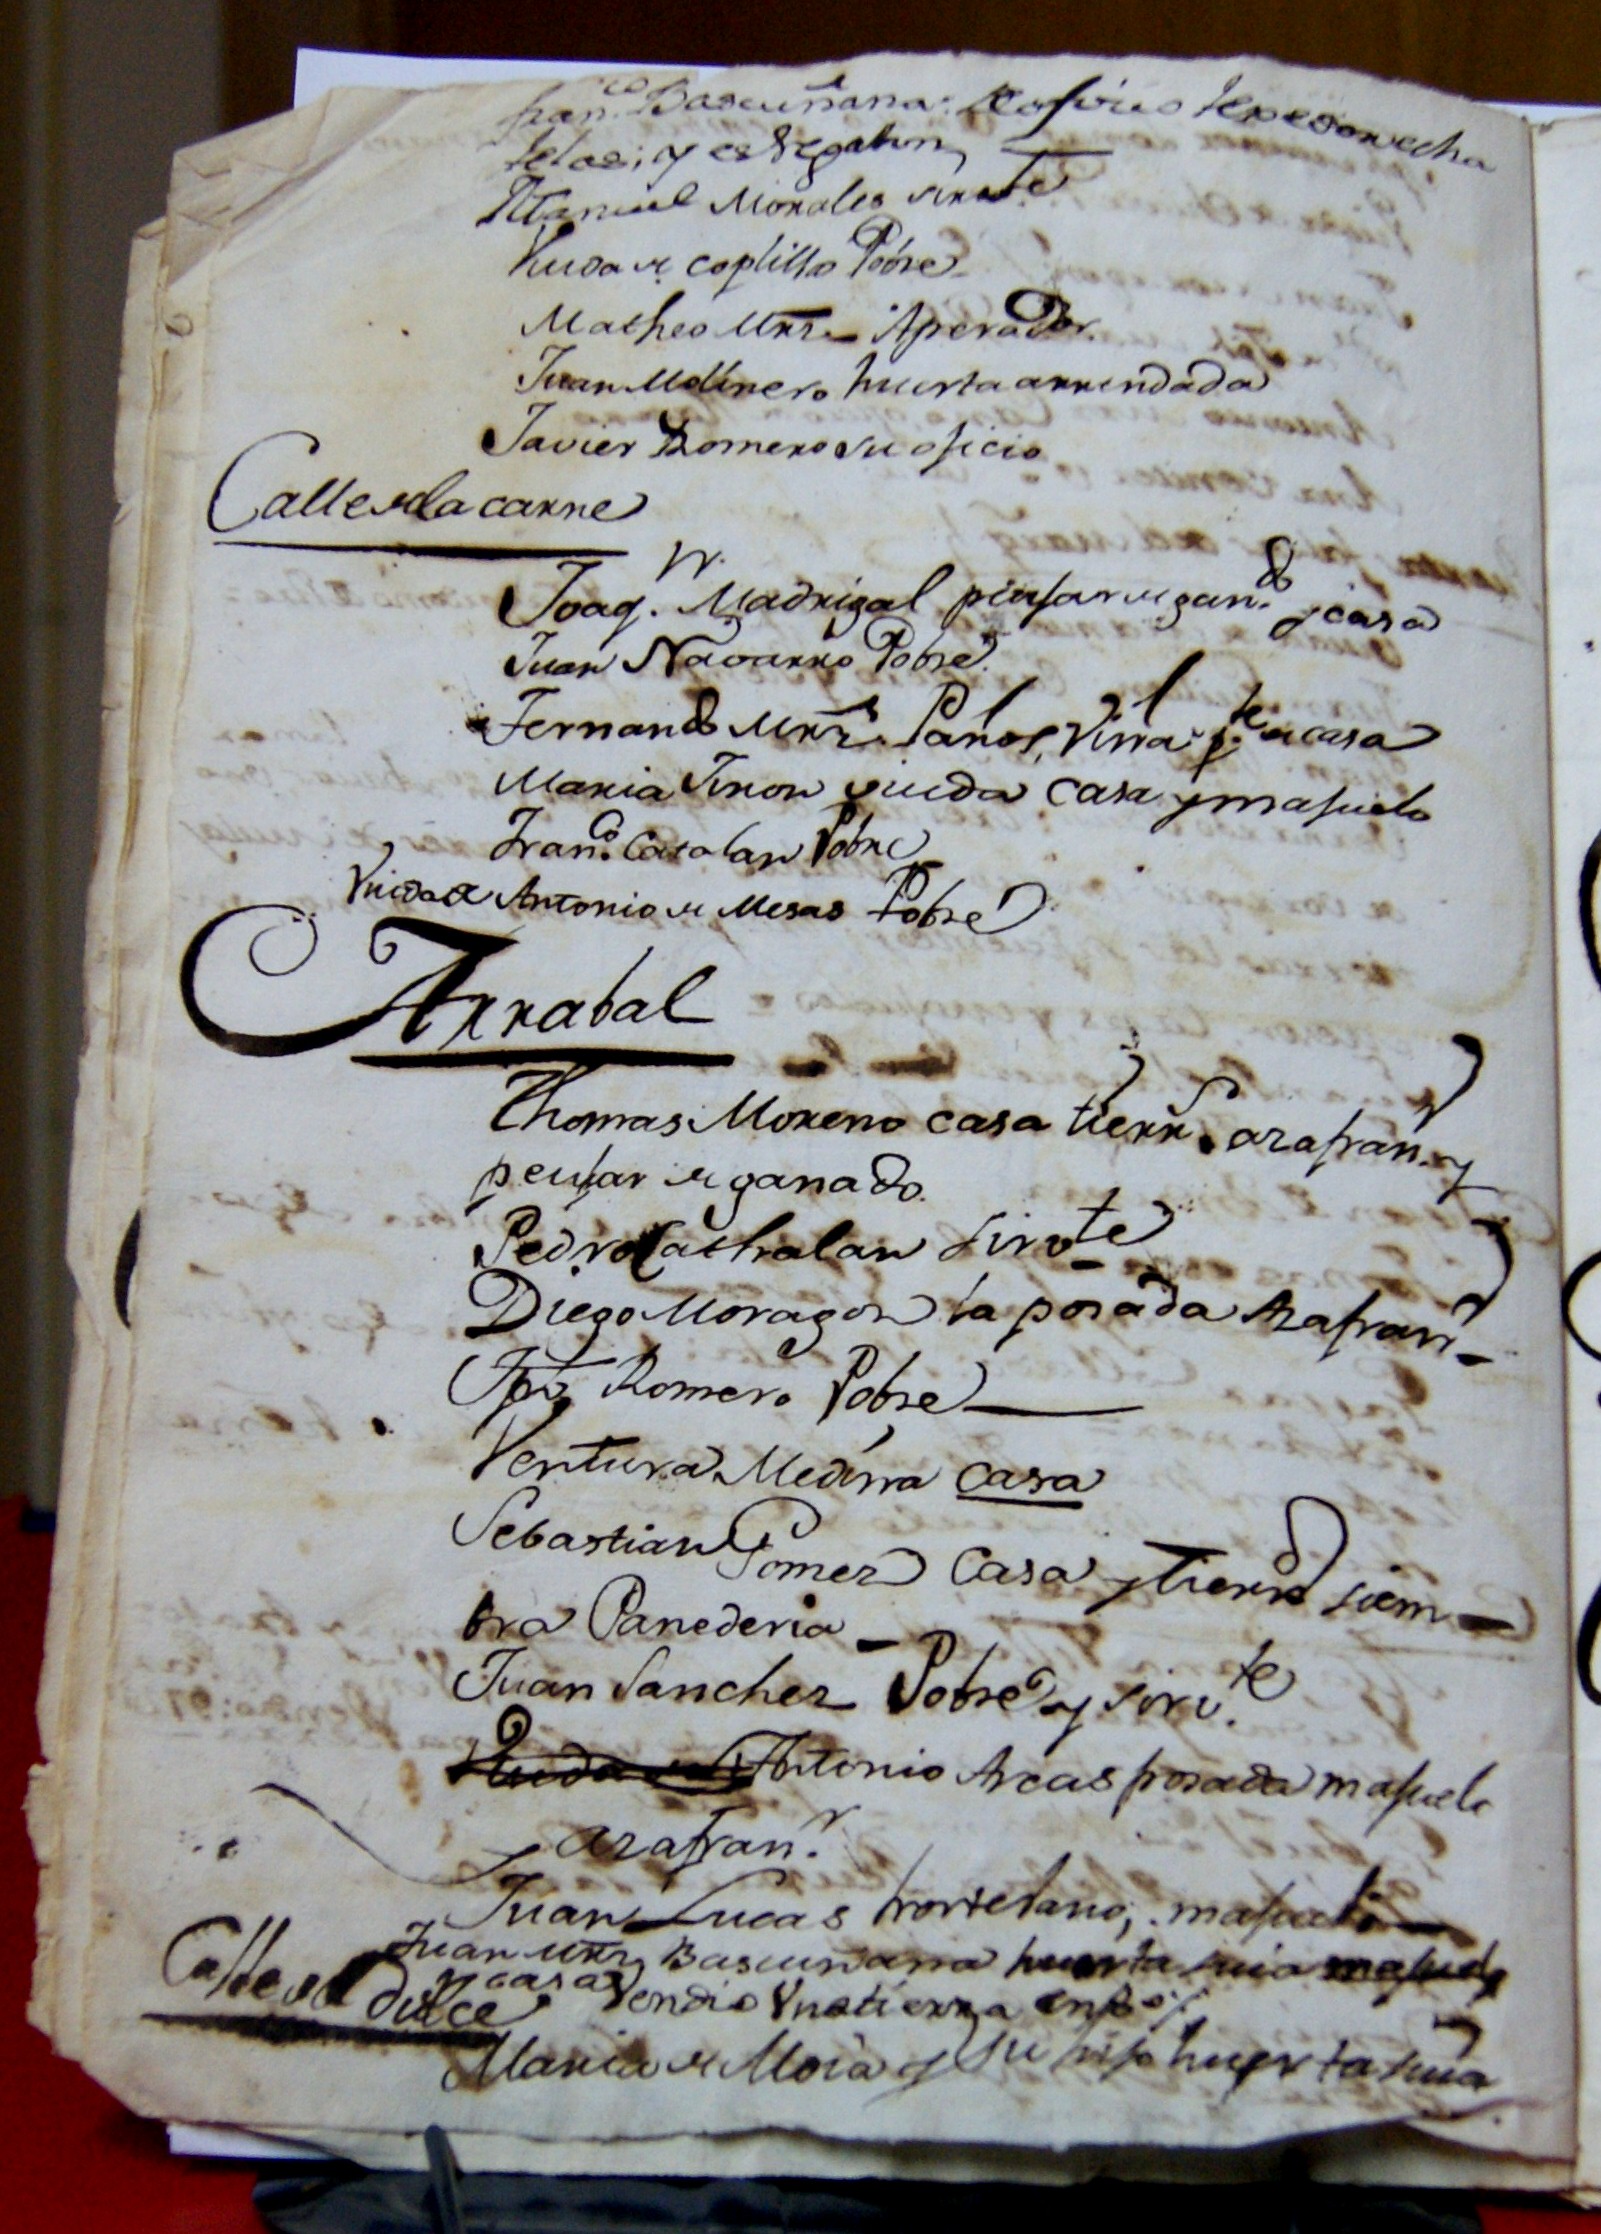 fran.co Bascuñana: oficio texedor echa
telas; y es Regaton
Manuel Morales sirv.te
Viuda de coplillas Pobre
Matheo Mrz. Aperador.
Juan Molinero huerta arrendada
Javier Romero su oficio
Calle de la carne
Joaq.n Madrigal piujar de gan.do y casa
Juan Navarro Pobre.
Fernando Mrz. Paños, Viña p.te de casa
Maria Tinon viuda casa y majuelo
Fran.co Catalan Pobre
Viuda de Antonio de Mesas Pobre
Arrabal
Thomas Moreno casa tierr.s azafran. y
peujar de ganado.
Pedro Cathalan sirv.te
Diego Moragon la posada Azafran.
Jph Romero Pobre
Ventura Medina casa
Sebastian Pomer casa y tierra siem-
bra Panederia
Juan Sanchez Pobre y sirv.te
Viuda de Antonio Arcas posada majuelo
azafran.r
Juan Lucas hortelano, majuelo
Juan Mrz Bascuñana huerta suia majuelo
y casas Vendio Una tierra en
Calle del Dulce
Maria de Moia y su hijo huerta suia